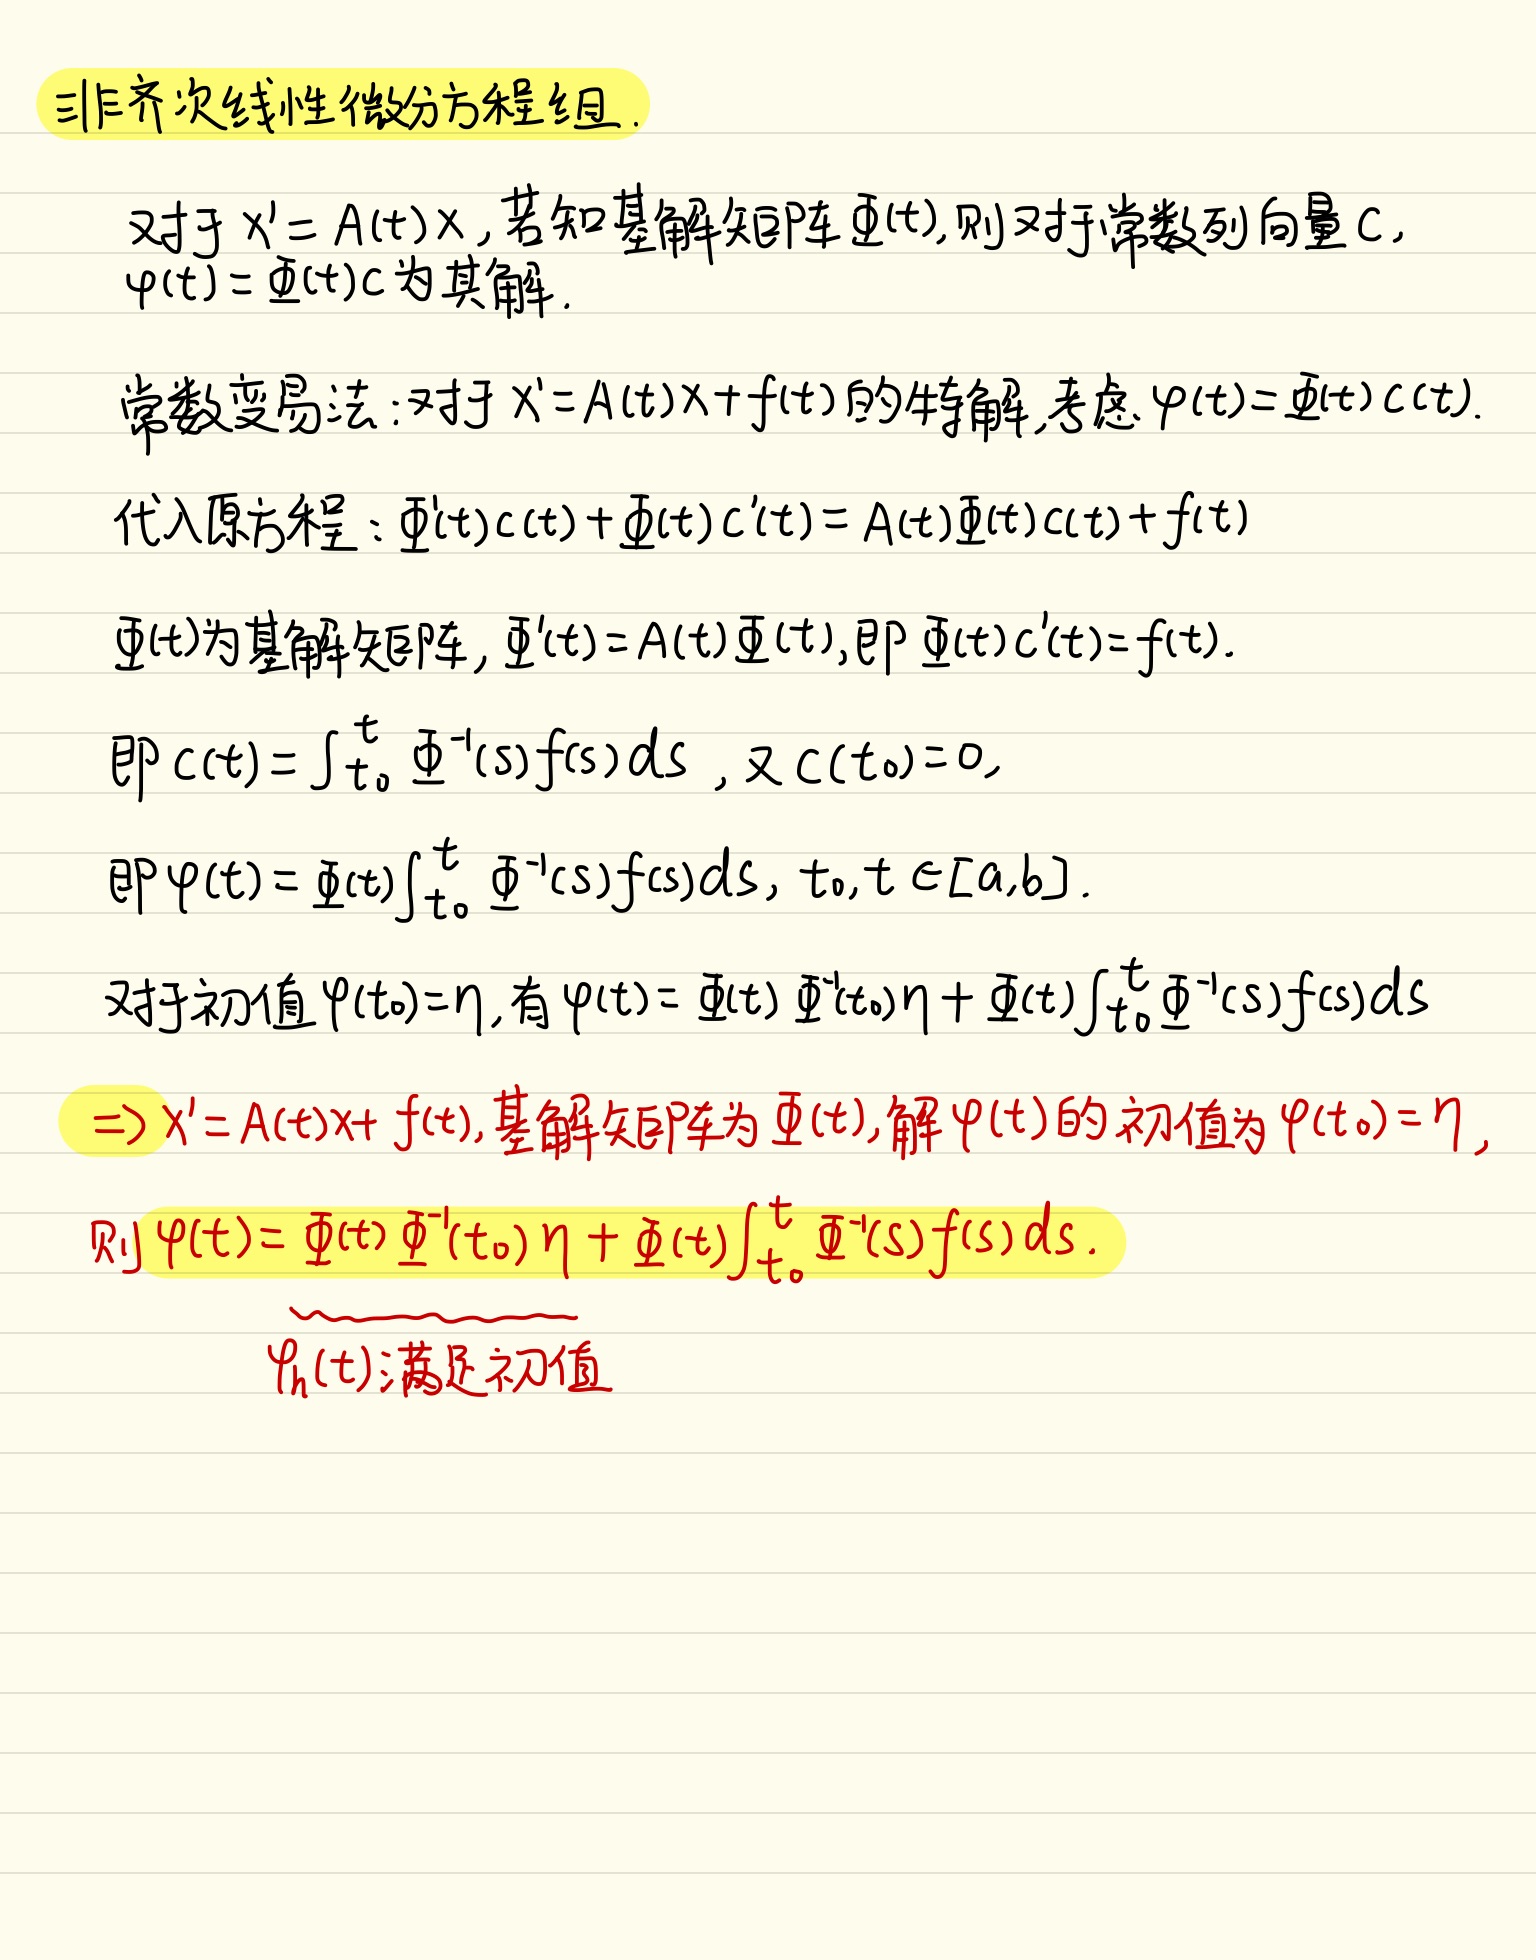 非齐次线性微分方程组.
对于 x' = A(t)x, 若知基解矩阵 Φ(t), 则对于常数列向量 c,
φ(t) = Φ(t)c 为其解.
常数变易法: 对于 x' = A(t)x + f(t) 的特解, 考虑 φ(t) = Φ(t)c(t).
代入原方程: Φ'(t)c(t) + Φ(t)c'(t) = A(t)Φ(t)c(t) + f(t)
Φ(t)为基解矩阵, Φ'(t) = A(t)Φ(t), 即 Φ(t)c'(t) = f(t).
即 c(t) = ∫_{t₀}^{t} Φ⁻¹(s)f(s)ds, 又 c(t₀) = 0,
即 φ(t) = Φ(t)∫_{t₀}^{t} Φ⁻¹(s)f(s)ds, t₀, t ∈ [a,b].
对于初值 φ(t₀) = η, 有 φ(t) = Φ(t)Φ⁻¹(t₀)η + Φ(t)∫_{t₀}^{t} Φ⁻¹(s)f(s)ds
⇒ x' = A(t)x + f(t), 基解矩阵为 Φ(t), 解 φ(t) 的初值为 φ(t₀) = η,
则 φ(t) = Φ(t)Φ⁻¹(t₀)η + Φ(t)∫_{t₀}^{t} Φ⁻¹(s)f(s)ds.
φₕ(t): 满足初值